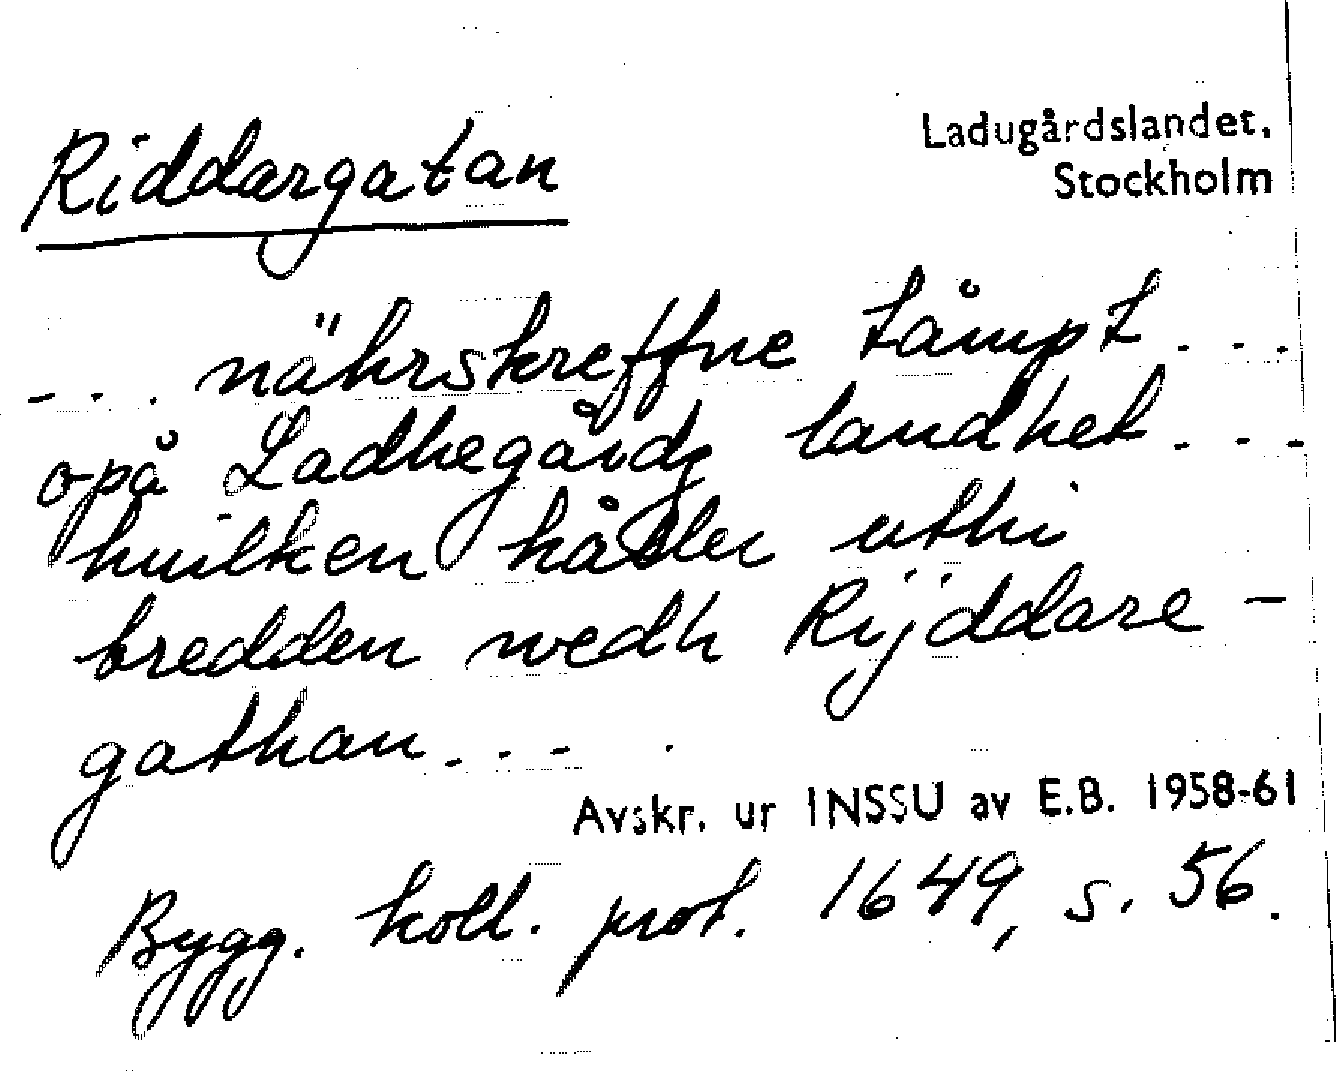 Riddargatan
Ladugårdslandet.
Stockholm
- . . nährskreffne tåmpt . . .
opå Ladhegårdz landhet . - -
huilken håller uthi
bredden wedh Rijddare -
gathan . - -
Avskr. ur INSSU av E.B. 1958-61
Bygg. koll. prot. 1649, s. 56.